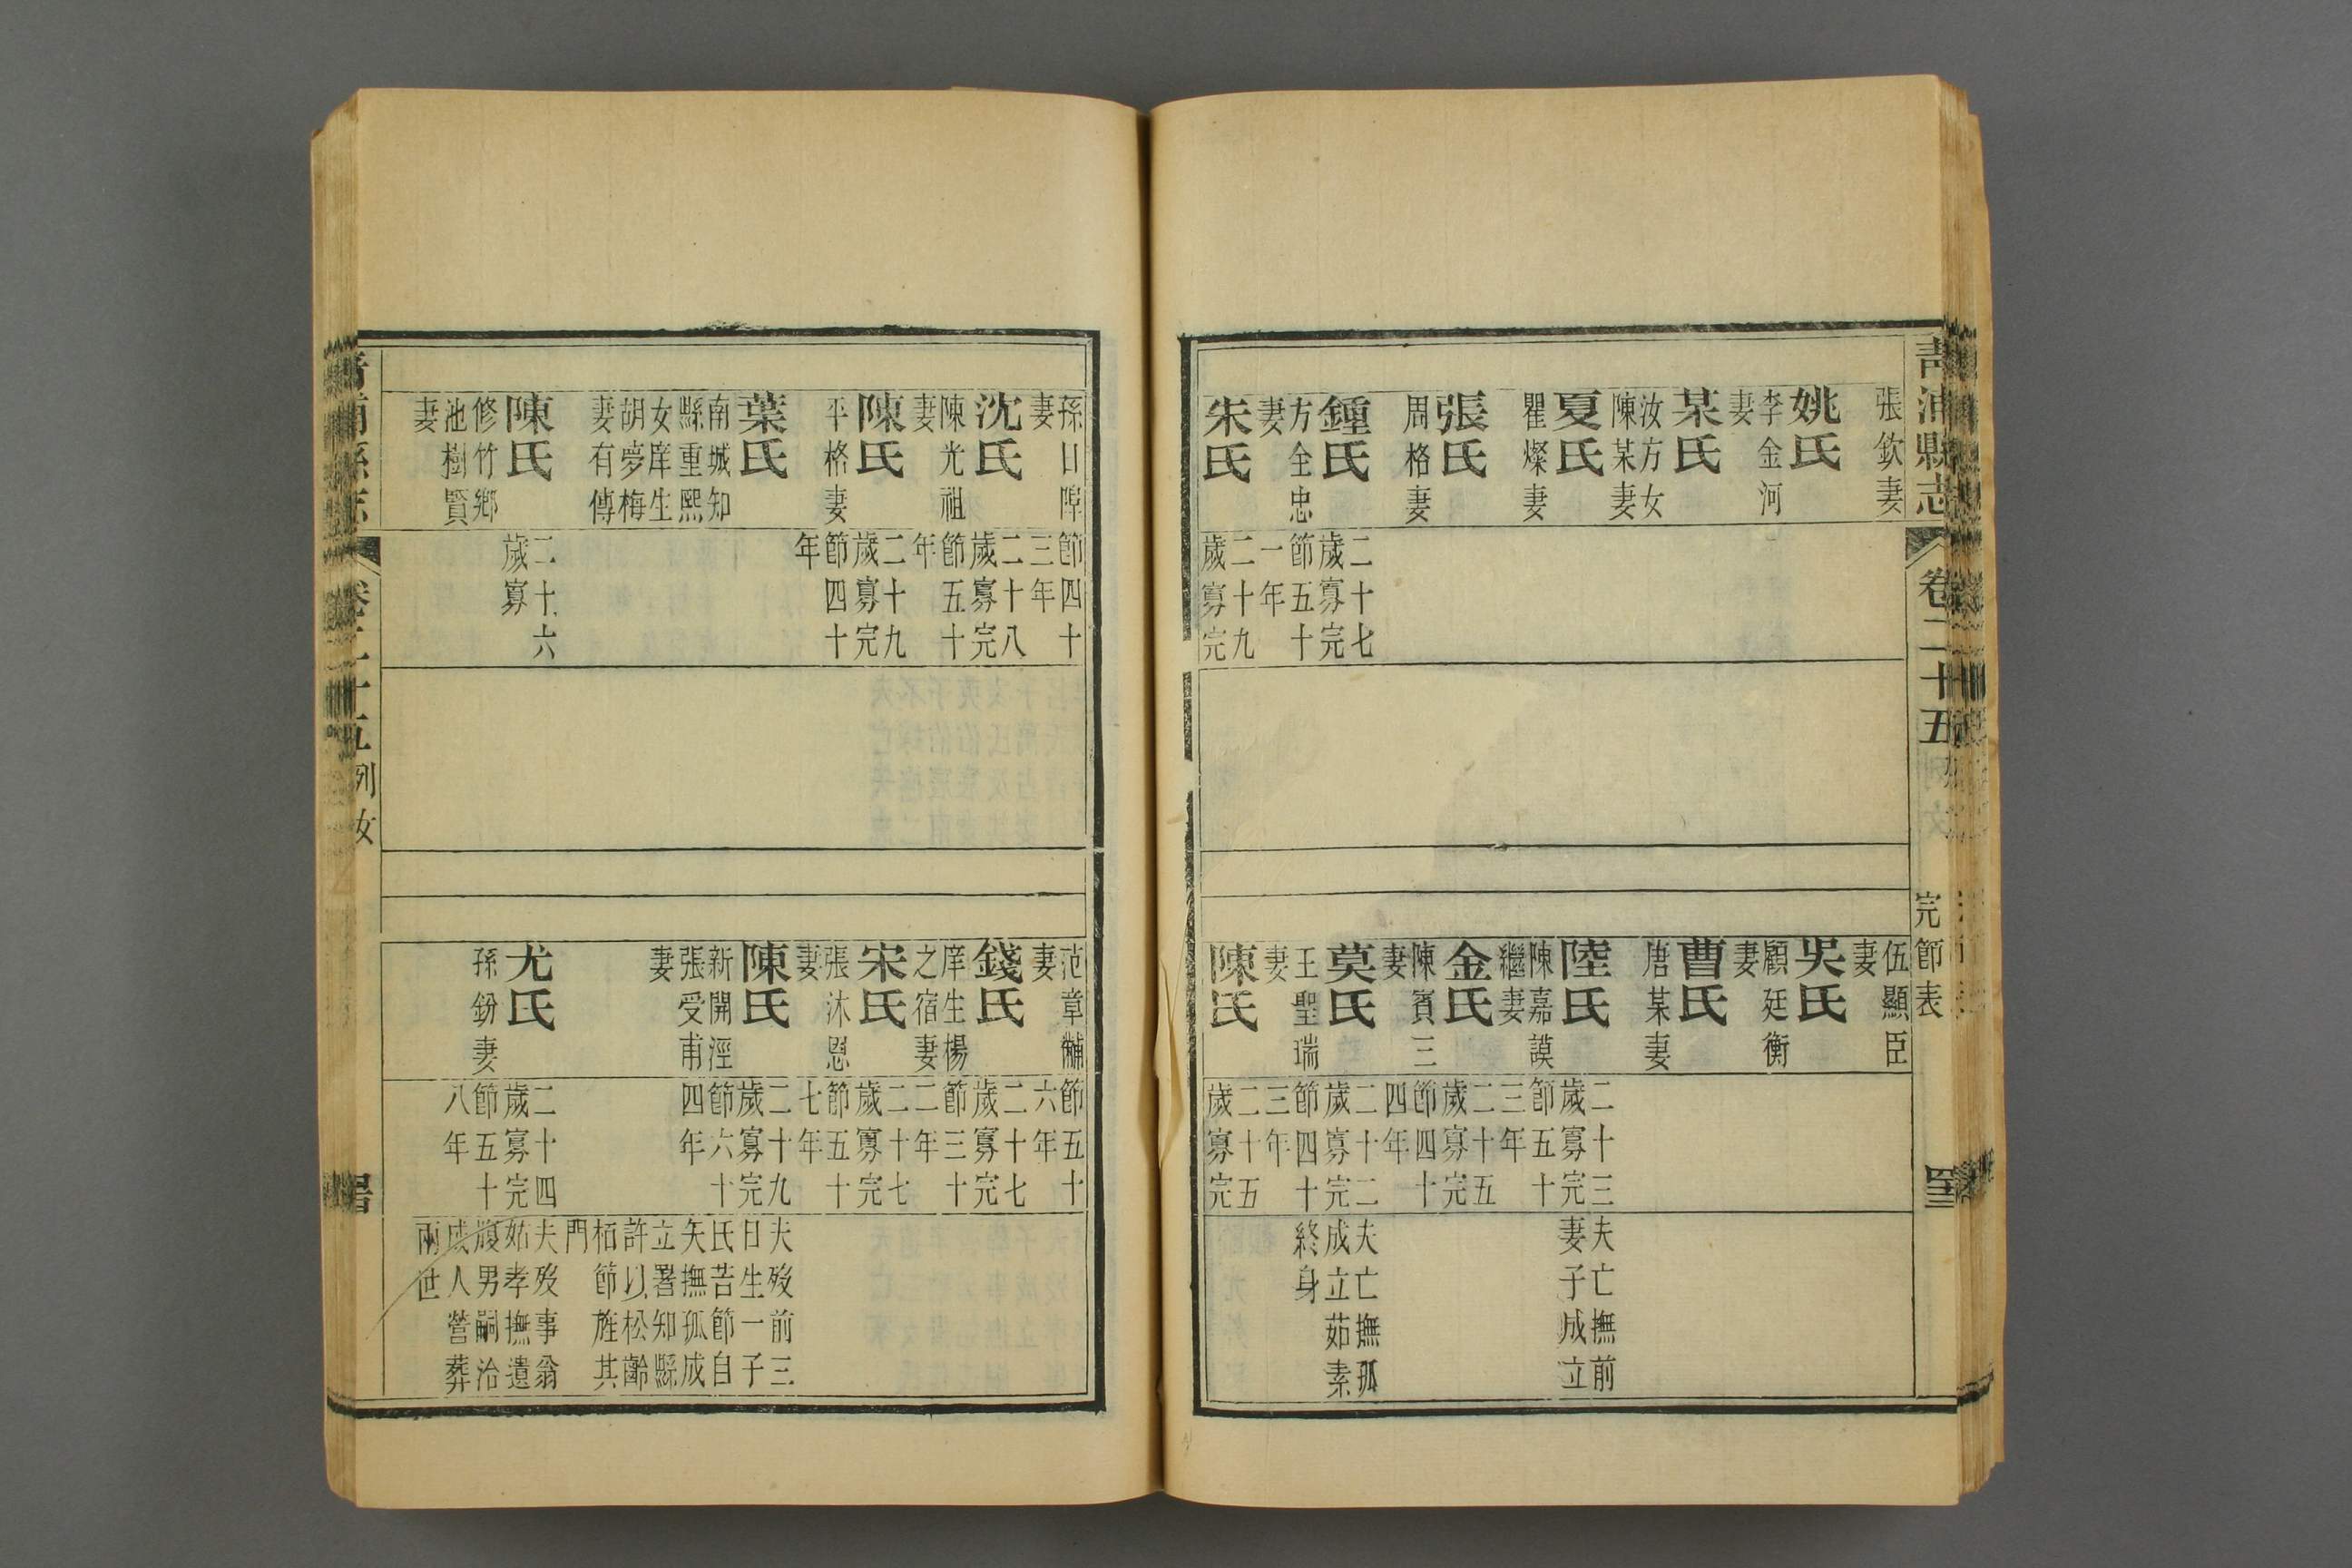 青浦縣志
卷二十五
列女
完節表
張欽妻
姚氏
李金河
妻
某氏
汝方女
陳某妻
夏氏
瞿燦妻
張氏
周格妻
鍾氏
方全忠
妻
朱氏
二十七
歲寡完
節五十
一年
二十九
歲寡完
伍顯臣
妻
吳氏
顧廷衡
妻
曹氏
唐某妻
陸氏
陳嘉謨
繼妻
金氏
陳賓三
妻
莫氏
王聖瑞
妻
陳氏
二十三
歲寡完
節五十
三年
二十五
歲寡完
節四十
四年
二十二
歲寡完
節四十
三年
二十五
歲寡完
夫亡撫前
妻子成立
夫亡撫孤
成立茹素
終身
孫日㻞
妻
沈氏
陳光祖
妻
陳氏
平格妻
葉氏
南城知
縣重熙
女庠生
胡夢梅
妻有傳
陳氏
修竹鄉
池樹賢
妻
節四十
三年
二十八
歲寡完
節五十
年
二十九
歲寡完
節四十
年
二十六
歲寡
范章黼
妻
錢氏
庠生楊
之宿妻
宋氏
張沐恩
妻
陳氏
新開涇
張受甫
妻
尤氏
孫鈖妻
節五十
六年
二十七
歲寡完
節三十
二年
二十七
歲寡完
節五十
七年
二十九
歲寡完
節六十
四年
二十四
歲寡完
節五十
八年
夫歿前三
日生一子
氏苦節自
矢撫孤成
立署知縣
許以松齡
栢節旌其
門
夫歿事翁
姑孝撫遺
腹男嗣治
成人營葬
兩世
青浦縣志
卷二十五
列女